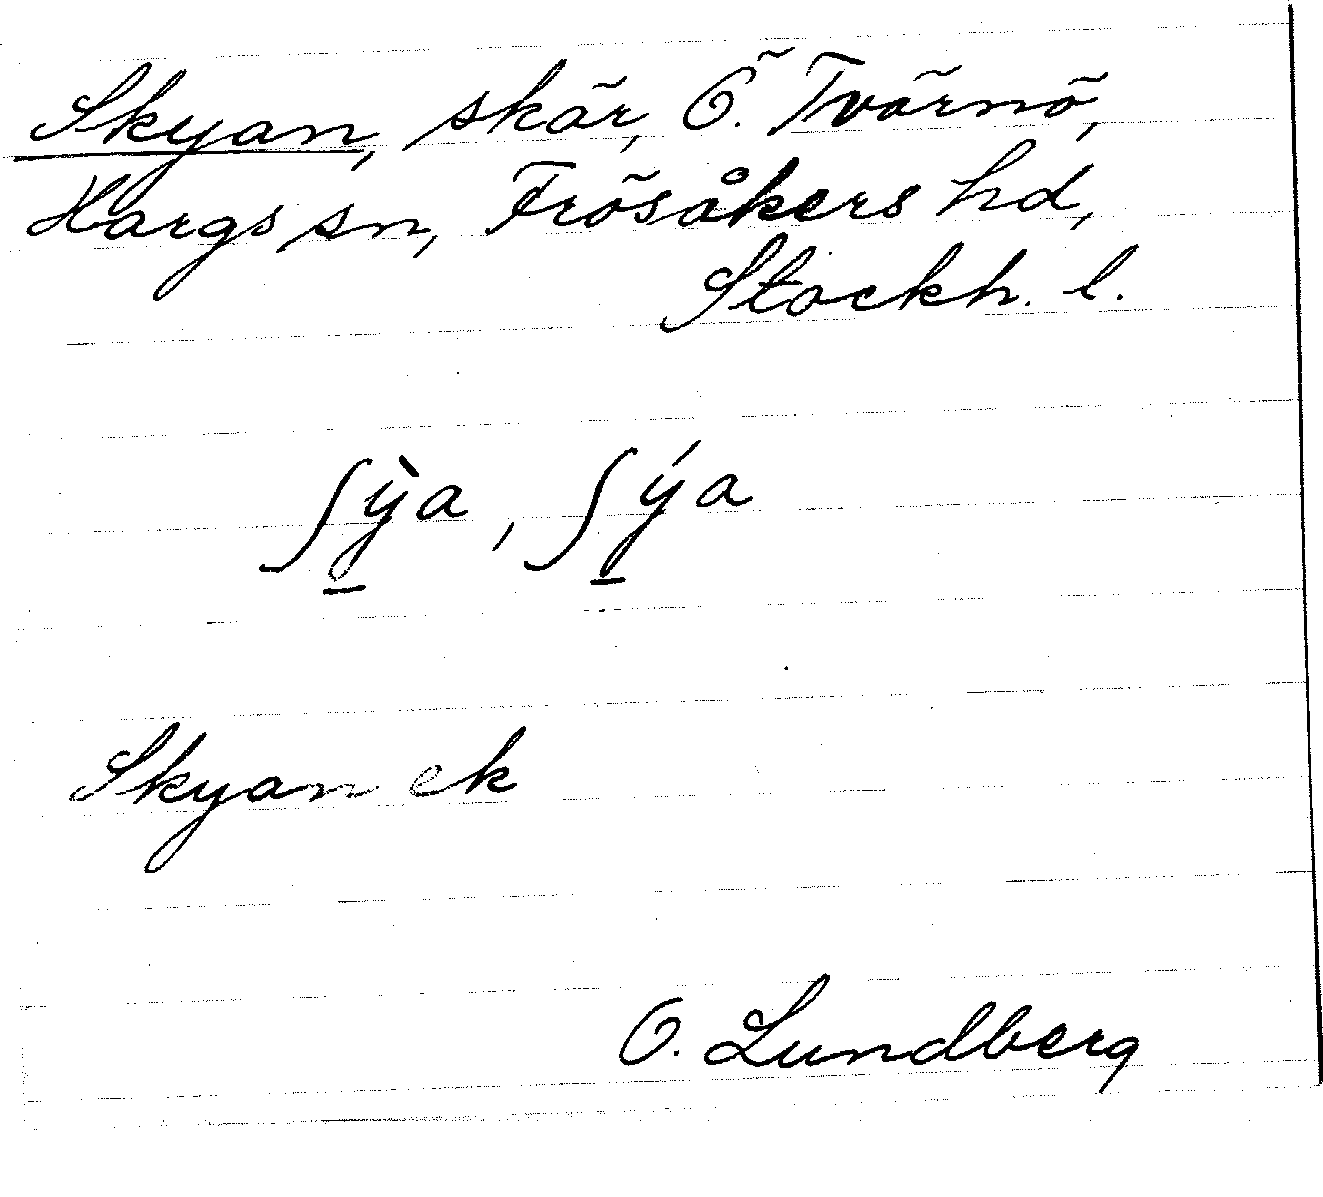 Skyan, skär, Ö. Tvärnö,
Hargs sn, Frösåkers hd,
Stockh. l.
ʃỳ̠a, ʃý̠a
Skyan ek
O. Lundberg